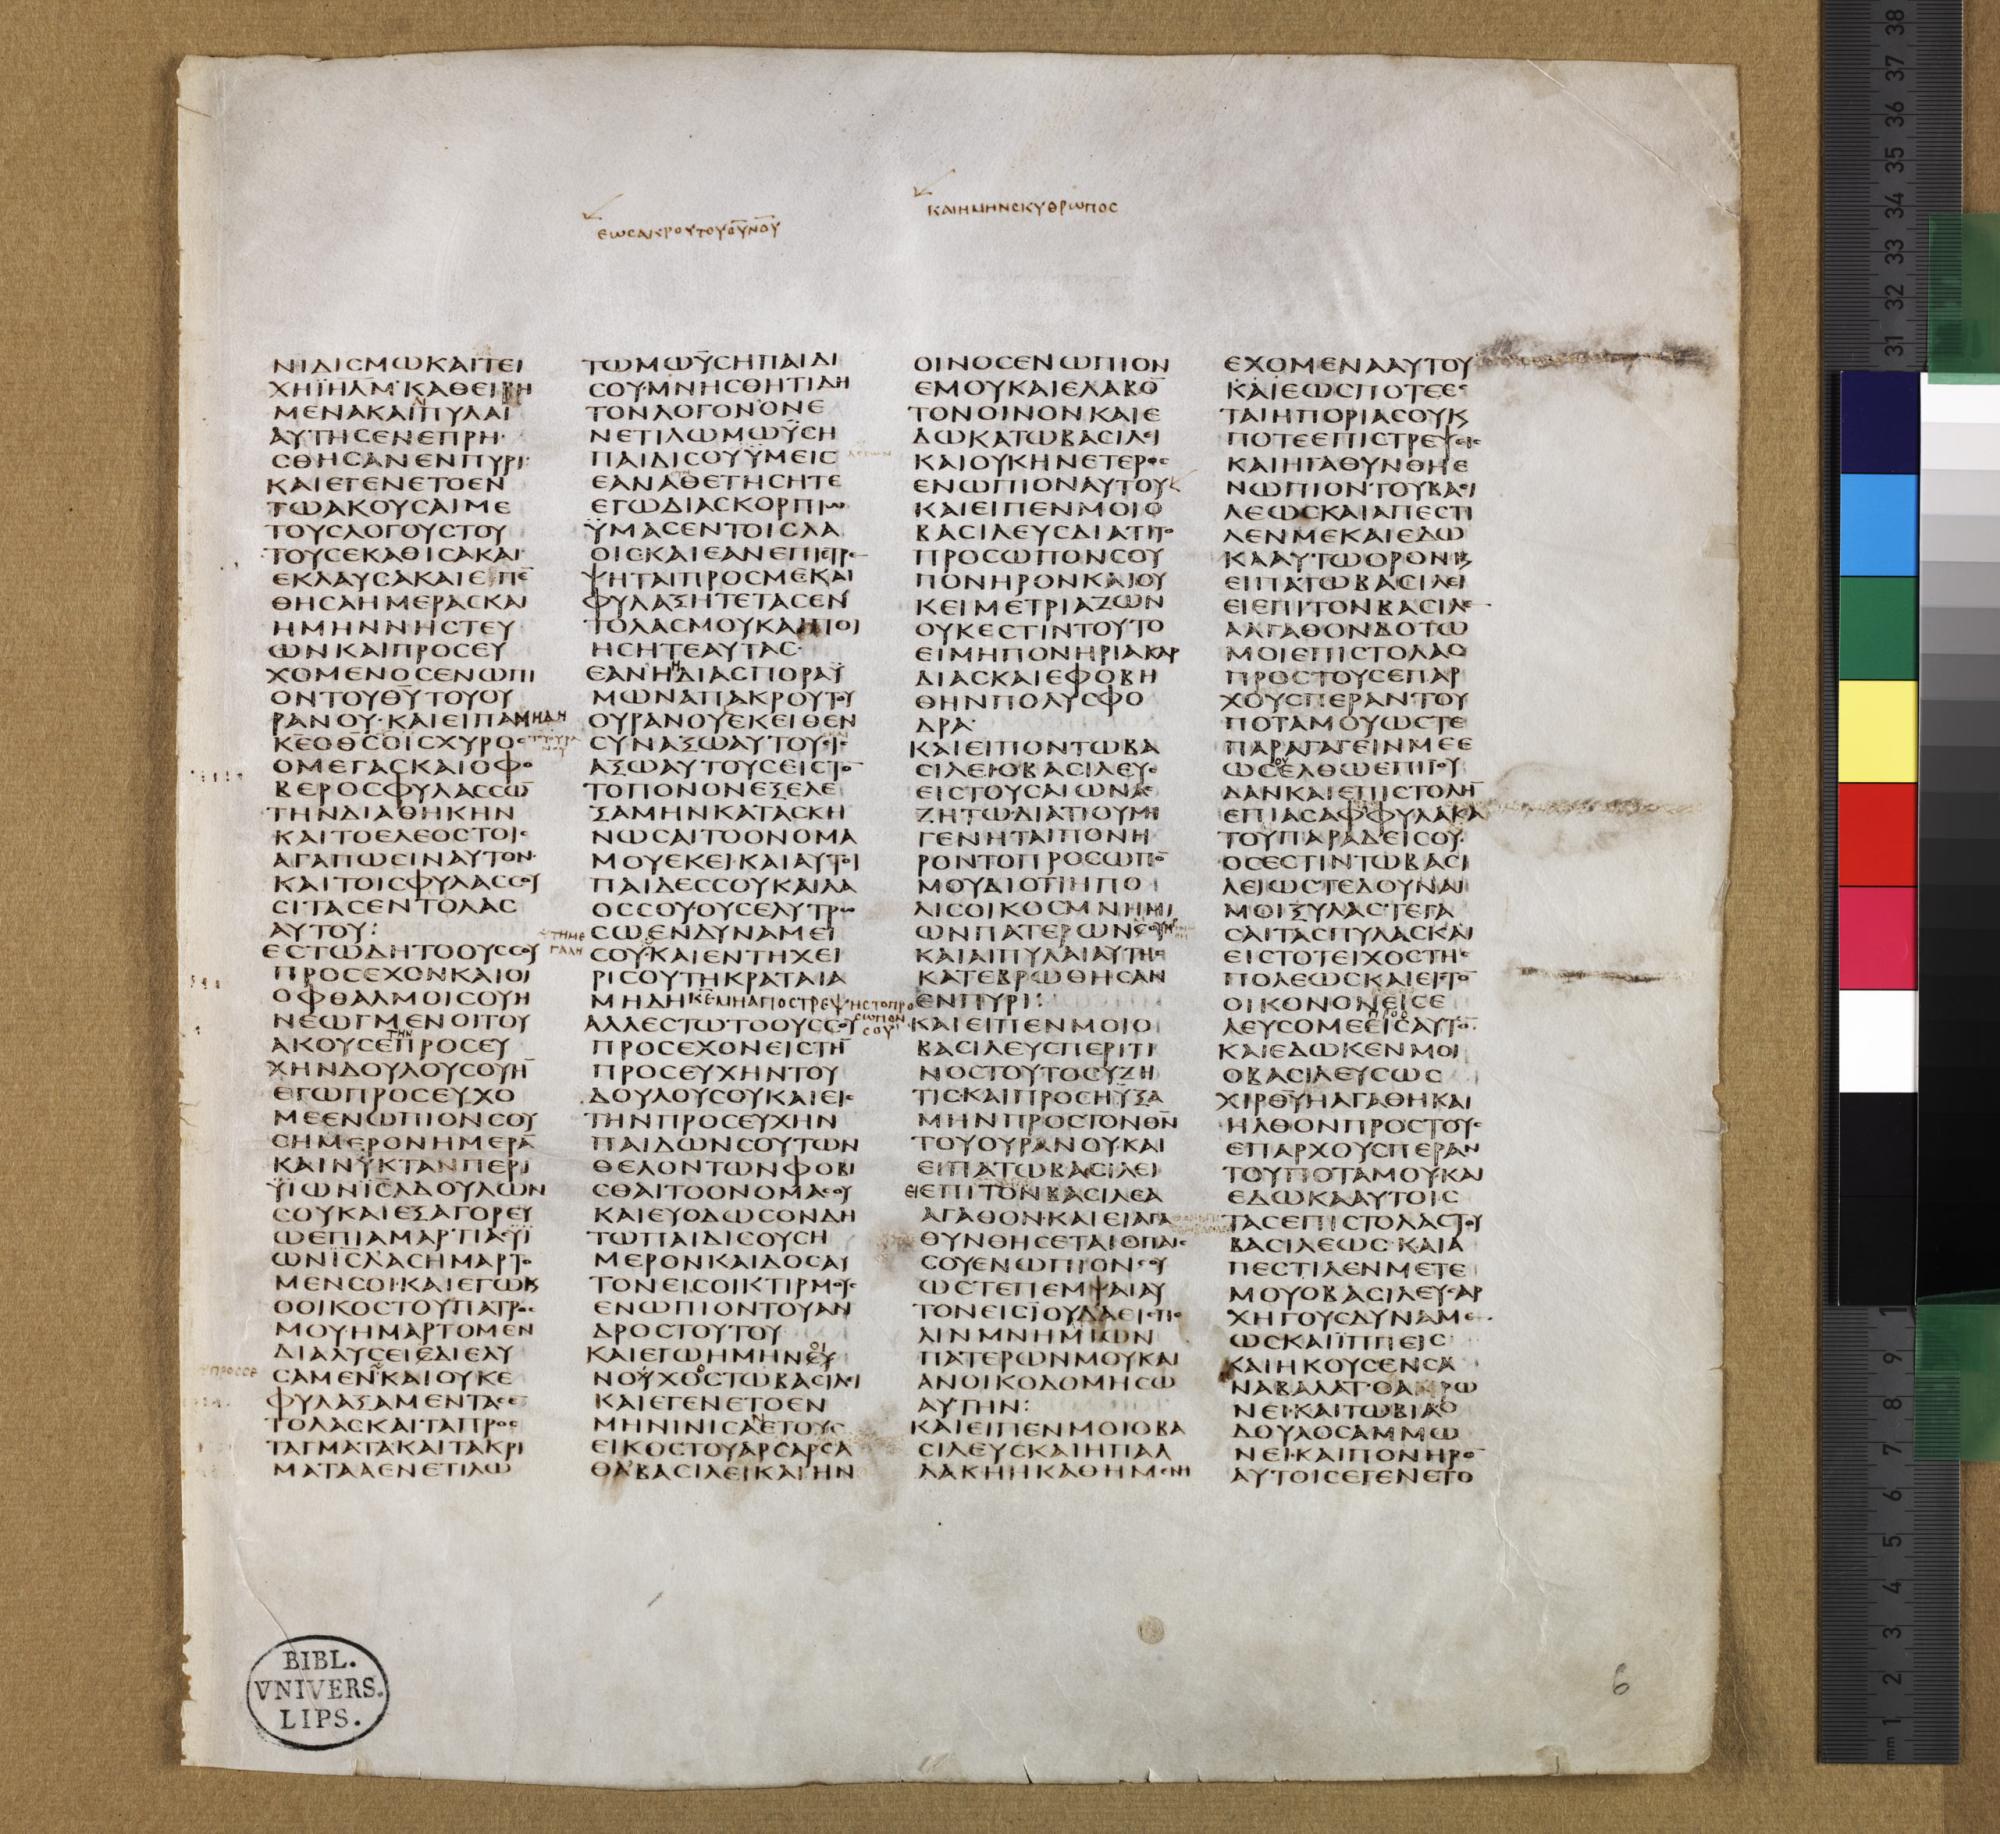 ΕΩϹΑΚΡΟΥΤΟΥΟΥ̅ΝΟΥ̅
ΚΑΙΗΜΗΝϹΚΥΘΡΩΠΟϹ
ΝΙΔΙϹΜΩΚΑΙΤΕΙ
ΧΗΪΗΛΜ·ΚΑΘΕΙΡΗ
ΜΕΝΑΚΑΙΠΥΛΑΙ
ΑΥΤΗϹΕΝΕΠΡΗ
ϹΘΗϹΑΝΕΝΠΥΡΙ·
ΚΑΙΕΓΕΝΕΤΟΕΝ
ΤΩΑΚΟΥϹΑΙΜΕ
ΤΟΥϹΛΟΓΟΥϹΤΟΥ
ΤΟΥϹΕΚΑΘΙϹΑΚΑΙ
ΕΚΛΑΥϹΑΚΑΙΕΠΕ̅
ΘΗϹΑΗΜΕΡΑϹΚΑΙ
ΗΜΗΝΝΗϹΤΕΥ
ΩΝΚΑΙΠΡΟϹΕΥ
ΧΟΜΕΝΟϹΕΝΩΠΙ
ΟΝΤΟΥΘΥ̅ΤΟΥΟΥ
ΡΑΝΟΥ·ΚΑΙΕΙΠΑΜΗΔΗ
ΚΕ̅ΟΘϹ̅ΟΙϹΧΥΡΟϹ
ΟΜΕΓΑϹΚΑΙΟΦΟ
ΒΕΡΟϹΦΥΛΑϹϹΩ̅
ΤΗΝΔΙΑΘΗΚΗΝ
ΚΑΙΤΟΕΛΕΟϹΤΟΙϹ
ΑΓΑΠΩϹΙΝΑΥΤΟΝ·
ΚΑΙΤΟΙϹΦΥΛΑϹϹΟΥ
ϹΙΤΑϹΕΝΤΟΛΑϹ
ΑΥΤΟΥ:
ΕϹΤΩΔΗΤΟΟΥϹϹΟΥ
ΠΡΟϹΕΧΟΝΚΑΙΟΙ
ΟΦΘΑΛΜΟΙϹΟΥΗ
ΝΕΩΓΜΕΝΟΙΤΟΥ
ΤΗΝ
ΑΚΟΥϹΕΠΡΟϹΕΥ
ΧΗΝΔΟΥΛΟΥϹΟΥΗ̅
ΕΓΩΠΡΟϹΕΥΧΟ
ΜΕΕΝΩΠΙΟΝϹΟΥ
ϹΗΜΕΡΟΝΗΜΕΡΑ̅
ΚΑΙΝΥΚΤΑΝΠΕΡΙ
ΫΙΩΝΙϹ̅Λ̅ΔΟΥΛΩΝ
ϹΟΥΚΑΙΕΞΑΓΟΡΕΥ
ΩΕΠΙΑΜΑΡΤΙΑΫΙ
ΩΝΙϹ̅Λ̅ΑϹΗΜΑΡΤΟ
ΜΕΝϹΟΙ·ΚΑΙΕΓΩΚ
ΟΟΙΚΟϹΤΟΥΠΑΤΡΟϹ
ΜΟΥΗΜΑΡΤΟΜΕΝ
ΔΙΑΛΥϹΕΙΕΔΙΕΛΥ
ϹΑΜΕΝΚΑΙΟΥΚΕ
ΦΥΛΑΞΑΜΕΝΤΑϹΕ
ΤΟΛΑϹΚΑΙΤΑΠΡΟϹ
ΤΑΓΜΑΤΑΚΑΙΤΑΚΡΙ
ΜΑΤΑΑΕΝΕΤΙΛΩ
ΤΩΜΩΫϹΗΠΑΙΔΙ
ϹΟΥ·ΜΝΗϹΘΗΤΙΔΗ
ΤΟΝΛΟΓΟΝΟΝΕ
ΝΕΤΙΛΩΜΩΫϹΗ
ΠΑΙΔΙϹΟΥΫΜΕΙϹ
ΕΑΝΑΘΕΤΗϹΗΤΕ
ΕΓΩΔΙΑϹΚΟΡΠΙΩ
ΫΜΑϹΕΝΤΟΙϹΛΑ
ΟΙϹΚΑΙΕΑΝΕΠΙϹΤΡΕ
ΨΗΤΑΙΠΡΟϹΜΕΚΑΙ
ΦΥΛΑΞΗΤΕΤΑϹΕΝ
ΤΟΛΑϹΜΟΥΚΑΙΠΟΙ
ΗϹΗΤΕΑΥΤΑϹ·
ΕΑΝΗΔΙΑϹΠΟΡΑΫ
ΜΩΝΑΠΑΚΡΟΥΤΟΥ
ΟΥΡΑΝΟΥΕΚΕΙΘΕΝ
ϹΥΝΑΞΩΑΥΤΟΥϹ
ΑΞΩΑΥΤΟΥϹΕΙϹΤΟ̅
ΤΟΠΟΝΟΝΕΞΕΛΕ
ΞΑΜΗΝΚΑΤΑϹΚΗ
ΝΩϹΑΙΤΟΟΝΟΜΑ
ΜΟΥΕΚΕΙ·ΚΑΙΑΥΤΟΙ
ΠΑΙΔΕϹϹΟΥΚΑΙΛΑ
ΟϹϹΟΥΟΥϹΕΛΥΤΡΩ
ϹΩΕΝΔΥΝΑΜΕΙ
ΤΗΜΕ
ΓΑΛΗ
ϹΟΥ·ΚΑΙΕΝΤΗΧΕΙ
ΡΙϹΟΥΤΗΚΡΑΤΑΙΑ
ΜΗΔΗΚΕ̅ΜΗΑΠΟϹΤΡΕΨΗϹΤΟΠΡΟ
ϹΩΠΟΝ
ϹΟΥ
ΑΛΛΕϹΤΩΤΟΟΥϹϹΟΥ
ΠΡΟϹΕΧΟΝΕΙϹΤΗ̅
ΠΡΟϹΕΥΧΗΝΤΟΥ
ΔΟΥΛΟΥϹΟΥΚΑΙΕΙϹ
ΤΗΝΠΡΟϹΕΥΧΗΝ
ΠΑΙΔΩΝϹΟΥΤΩΝ
ΘΕΛΟΝΤΩΝΦΟΒΙ
ϹΘΑΙΤΟΟΝΟΜΑϹΟΥ
ΚΑΙΕΥΟΔΩϹΟΝΔΗ
ΤΩΠΑΙΔΙϹΟΥϹΗ
ΜΕΡΟΝΚΑΙΔΟϹΑΥ
ΤΟΝΕΙϹΟΙΚΤΙΡΜΟΥϹ
ΕΝΩΠΙΟΝΤΟΥΑΝ
ΔΡΟϹΤΟΥΤΟΥ
ΚΑΙΕΓΩΗΜΗΝΕΥ
ΝΟΥΧΟϹΤΩΒΑϹΙΛΙ
ΚΑΙΕΓΕΝΕΤΟΕΝ
ΜΗΝΙΝΙϹΑΕΤΟΥϹ
ΕΙΚΟϹΤΟΥΑΡϹΑΡϹΑ
ΘΑΒΑϹΙΛΕΙΚΑΙΗΝ
ΟΙΝΟϹΕΝΩΠΙΟΝ
ΕΜΟΥΚΑΙΕΛΑΒΟ̅
ΤΟΝΟΙΝΟΝΚΑΙΕ
ΔΩΚΑΤΩΒΑϹΙΛΙ
ΚΑΙΟΥΚΗΝΕΤΕΡΟϹ
ΕΝΩΠΙΟΝΑΥΤΟΥ
ΚΑΙΕΙΠΕΝΜΟΙΟ
ΒΑϹΙΛΕΥϹΔΙΑΤΙΤΟ
ΠΡΟϹΩΠΟΝϹΟΥ
ΠΟΝΗΡΟΝΚΑΙΟΥ
ΚΕΙΜΕΤΡΙΑΖΩΝ
ΟΥΚΕϹΤΙΝΤΟΥΤΟ
ΕΙΜΗΠΟΝΗΡΙΑΚΑΡ
ΔΙΑϹΚΑΙΕΦΟΒΗ
ΘΗΝΠΟΛΥϹΦΟ
ΔΡΑ·
ΚΑΙΕΙΠΟΝΤΩΒΑ
ϹΙΛΕΙΟΒΑϹΙΛΕΥϹ
ΕΙϹΤΟΥϹΑΙΩΝΑϹ
ΖΗΤΩ·ΔΙΑΤΙΟΥΜΗ
ΓΕΝΗΤΑΙΠΟΝΗ
ΡΟΝΤΟΠΡΟϹΩΠΟ̅
ΜΟΥΔΙΟΤΙΗΠΟ
ΛΙϹΟΙΚΟϹΜΝΗΜΙ
ΩΝΠΑΤΕΡΩΝ
ΚΑΙΑΙΠΥΛΑΙΑΥΤΗϹ
ΚΑΤΕΒΡΩΘΗϹΑΝ
ΕΝΠΥΡΙ:
ΚΑΙΕΙΠΕΝΜΟΙΟ
ΒΑϹΙΛΕΥϹΠΕΡΙΤΙ
ΝΟϹΤΟΥΤΟϹΥΖΗ
ΤΙϹ·ΚΑΙΠΡΟϹΗΥΞΑ
ΜΗΝΠΡΟϹΤΟΝΘΝ̅
ΤΟΥΟΥΡΑΝΟΥ·ΚΑΙ
ΕΙΠΑΤΩΒΑϹΙΛΕΙ
ΕΙΕΠΙΤΟΝΒΑϹΙΛΕΑ
ΑΓΑΘΟΝ·ΚΑΙΕΙΑΓΑ
ΘΥΝΘΗϹΕΤΑΙΟΠΑΙϹ
ϹΟΥΕΝΩΠΙΟΝϹΟΥ
ΩϹΤΕΠΕΜΨΑΙΑΥ
ΤΟΝΕΙϹΪΟΥΔΑΕΙϹΠΟ
ΛΙΝΜΝΗΜΙΩΝ
ΠΑΤΕΡΩΝΜΟΥΚΑΙ
ΑΝΟΙΚΟΔΟΜΗϹΩ
ΑΥΤΗΝ:
ΚΑΙΕΙΠΕΝΜΟΙΟΒΑ
ϹΙΛΕΥϹΚΑΙΗΠΑΛ
ΛΑΚΗΗΚΑΘΗΜΕΝΗ
ΕΧΟΜΕΝΑΑΥΤΟΥ
ΚΑΙΕΩϹΠΟΤΕΕϹ
ΤΑΙΗΠΟΡΙΑϹΟΥΚ
ΠΟΤΕΕΠΙϹΤΡΕΨΕΙϹ
ΚΑΙΗΓΑΘΥΝΘΗΕ
ΝΩΠΙΟΝΤΟΥΒΑϹΙ
ΛΕΩϹΚΑΙΑΠΕϹΤΙ
ΛΕΝΜΕΚΑΙΕΔΩ
ΚΑΑΥΤΩΟΡΟΝΚ
ΕΙΠΑΤΩΒΑϹΙΛΕΙ
ΕΙΕΠΙΤΟΝΒΑϹΙΛΕ
ΑΑΓΑΘΟΝΔΟΤΩ
ΜΟΙΕΠΙϹΤΟΛΑϹ
ΠΡΟϹΤΟΥϹΕΠΑΡ
ΧΟΥϹΠΕΡΑΝΤΟΥ
ΠΟΤΑΜΟΥΩϹΤΕ
ΠΑΡΑΓΑΓΕΙΝΜΕΕ
ΩϹΕΛΘΩΕΠΙΪΟΥ
ΔΑΝΚΑΙΕΠΙϹΤΟΛΗ̅
ΕΠΙΑϹΑΦΦΥΛΑΚΑ
ΤΟΥΠΑΡΑΔΕΙϹΟΥ
ΟϹΕϹΤΙΝΤΩΒΑϹΙ
ΛΕΙΩϹΤΕΔΟΥΝΑΙ
ΜΟΙΞΥΛΑϹΤΕΓΑ
ϹΑΙΤΑϹΠΥΛΑϹΚΑΙ
ΕΙϹΤΟΤΕΙΧΟϹΤΗϹ
ΠΟΛΕΩϹΚΑΙΕΙϹΤΟ̅
ΟΙΚΟΝΟΝΕΙϹΕ
ΠΡΟϹ
ΛΕΥϹΟΜΕΕΙϹΑΥΤΟ̅·
ΚΑΙΕΔΩΚΕΝΜΟΙ
ΟΒΑϹΙΛΕΥϹΩϹ
ΧΙΡΘΥ̅ΗΑΓΑΘΗΚΑΙ
ΗΛΘΟΝΠΡΟϹΤΟΥϹ
ΕΠΑΡΧΟΥϹΠΕΡΑΝ
ΤΟΥΠΟΤΑΜΟΥΚΑΙ
ΕΔΩΚΑΑΥΤΟΙϹ
ΤΑϹΕΠΙϹΤΟΛΑϹΤΟΥ
ΒΑϹΙΛΕΩϹ·ΚΑΙΑ
ΠΕϹΤΙΛΕΝΜΕΤΕ
ΜΟΥΟΒΑϹΙΛΕΥϹΑΡ
ΧΗΓΟΥϹΔΥΝΑΜΕ
ΩϹΚΑΙΪΠΠΕΙϹ
ΚΑΙΗΚΟΥϹΕΝϹΑ
ΝΑΒΑΛΛΑΤΟΑΡΩ
ΝΕΙ·ΚΑΙΤΩΒΙΑΟ
ΔΟΥΛΟϹΑΜΜΩ
ΝΕΙ·ΚΑΙΠΟΝΗΡΟ̅
ΑΥΤΟΙϹΕΓΕΝΕΤΟ
BIBL.
VNIVERS.
LIPS.
6
38
37
36
35
34
33
32
31
1
9
8
7
6
5
4
3
2
1
mm